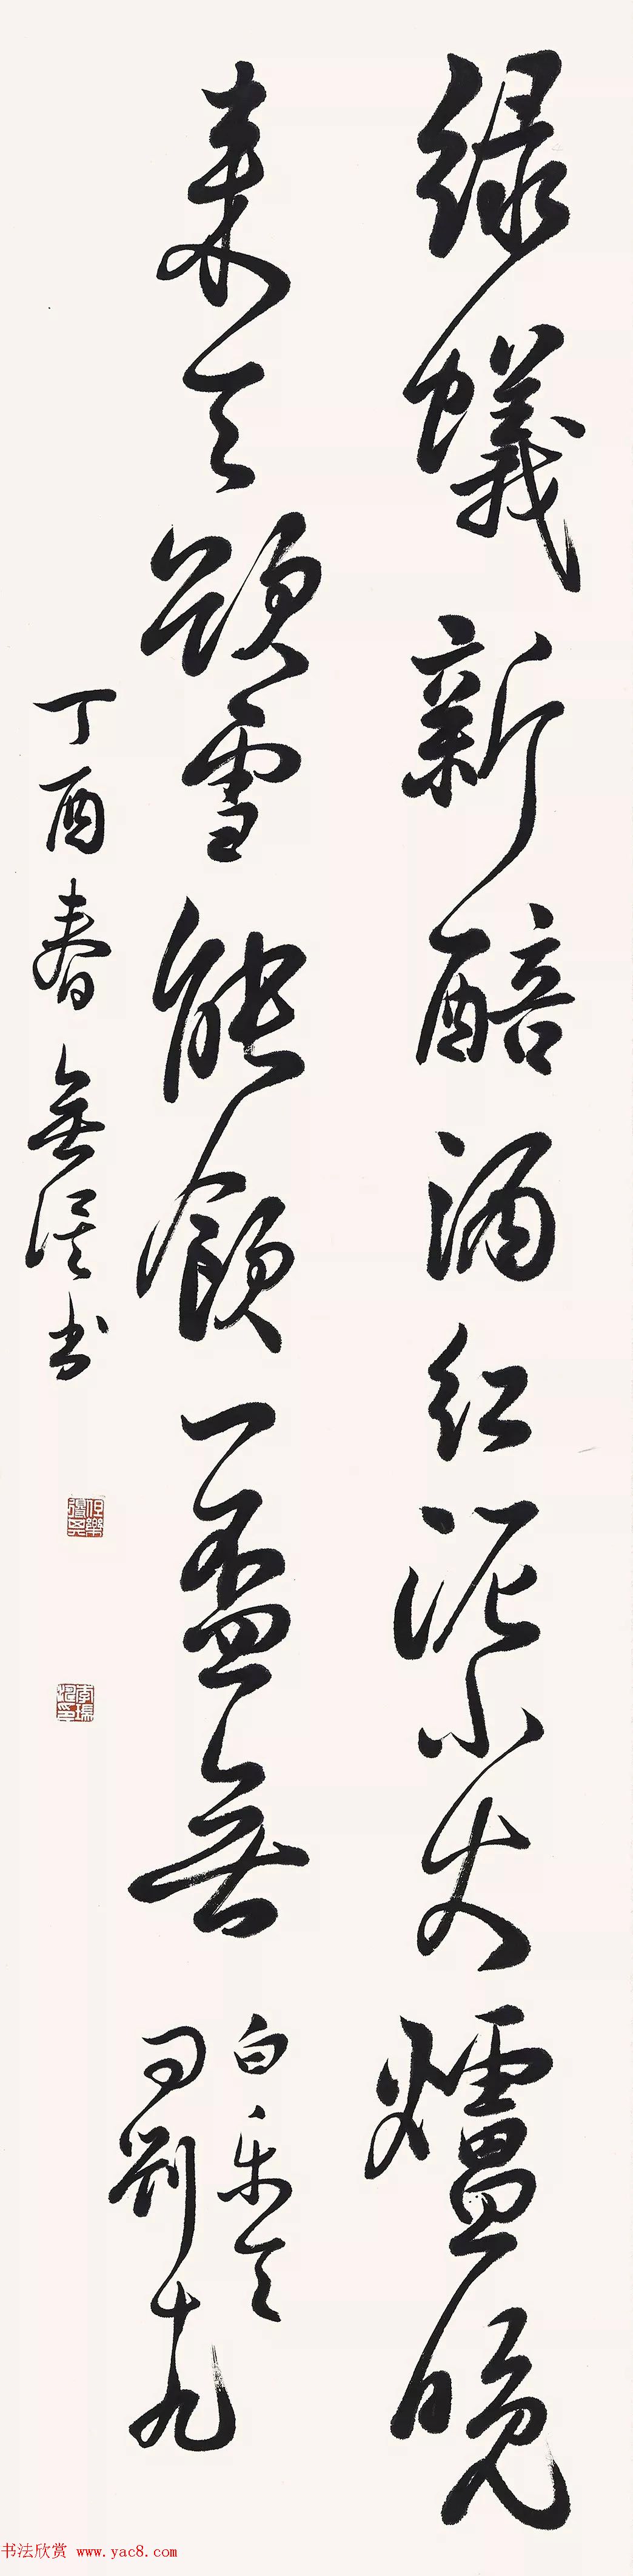 緑蟻新醅酒紅泥小火爐晚
来天欲雪能飲一盃無
白乐天
问刘十九
丁酉春书
书法欣赏 www.yac8.com